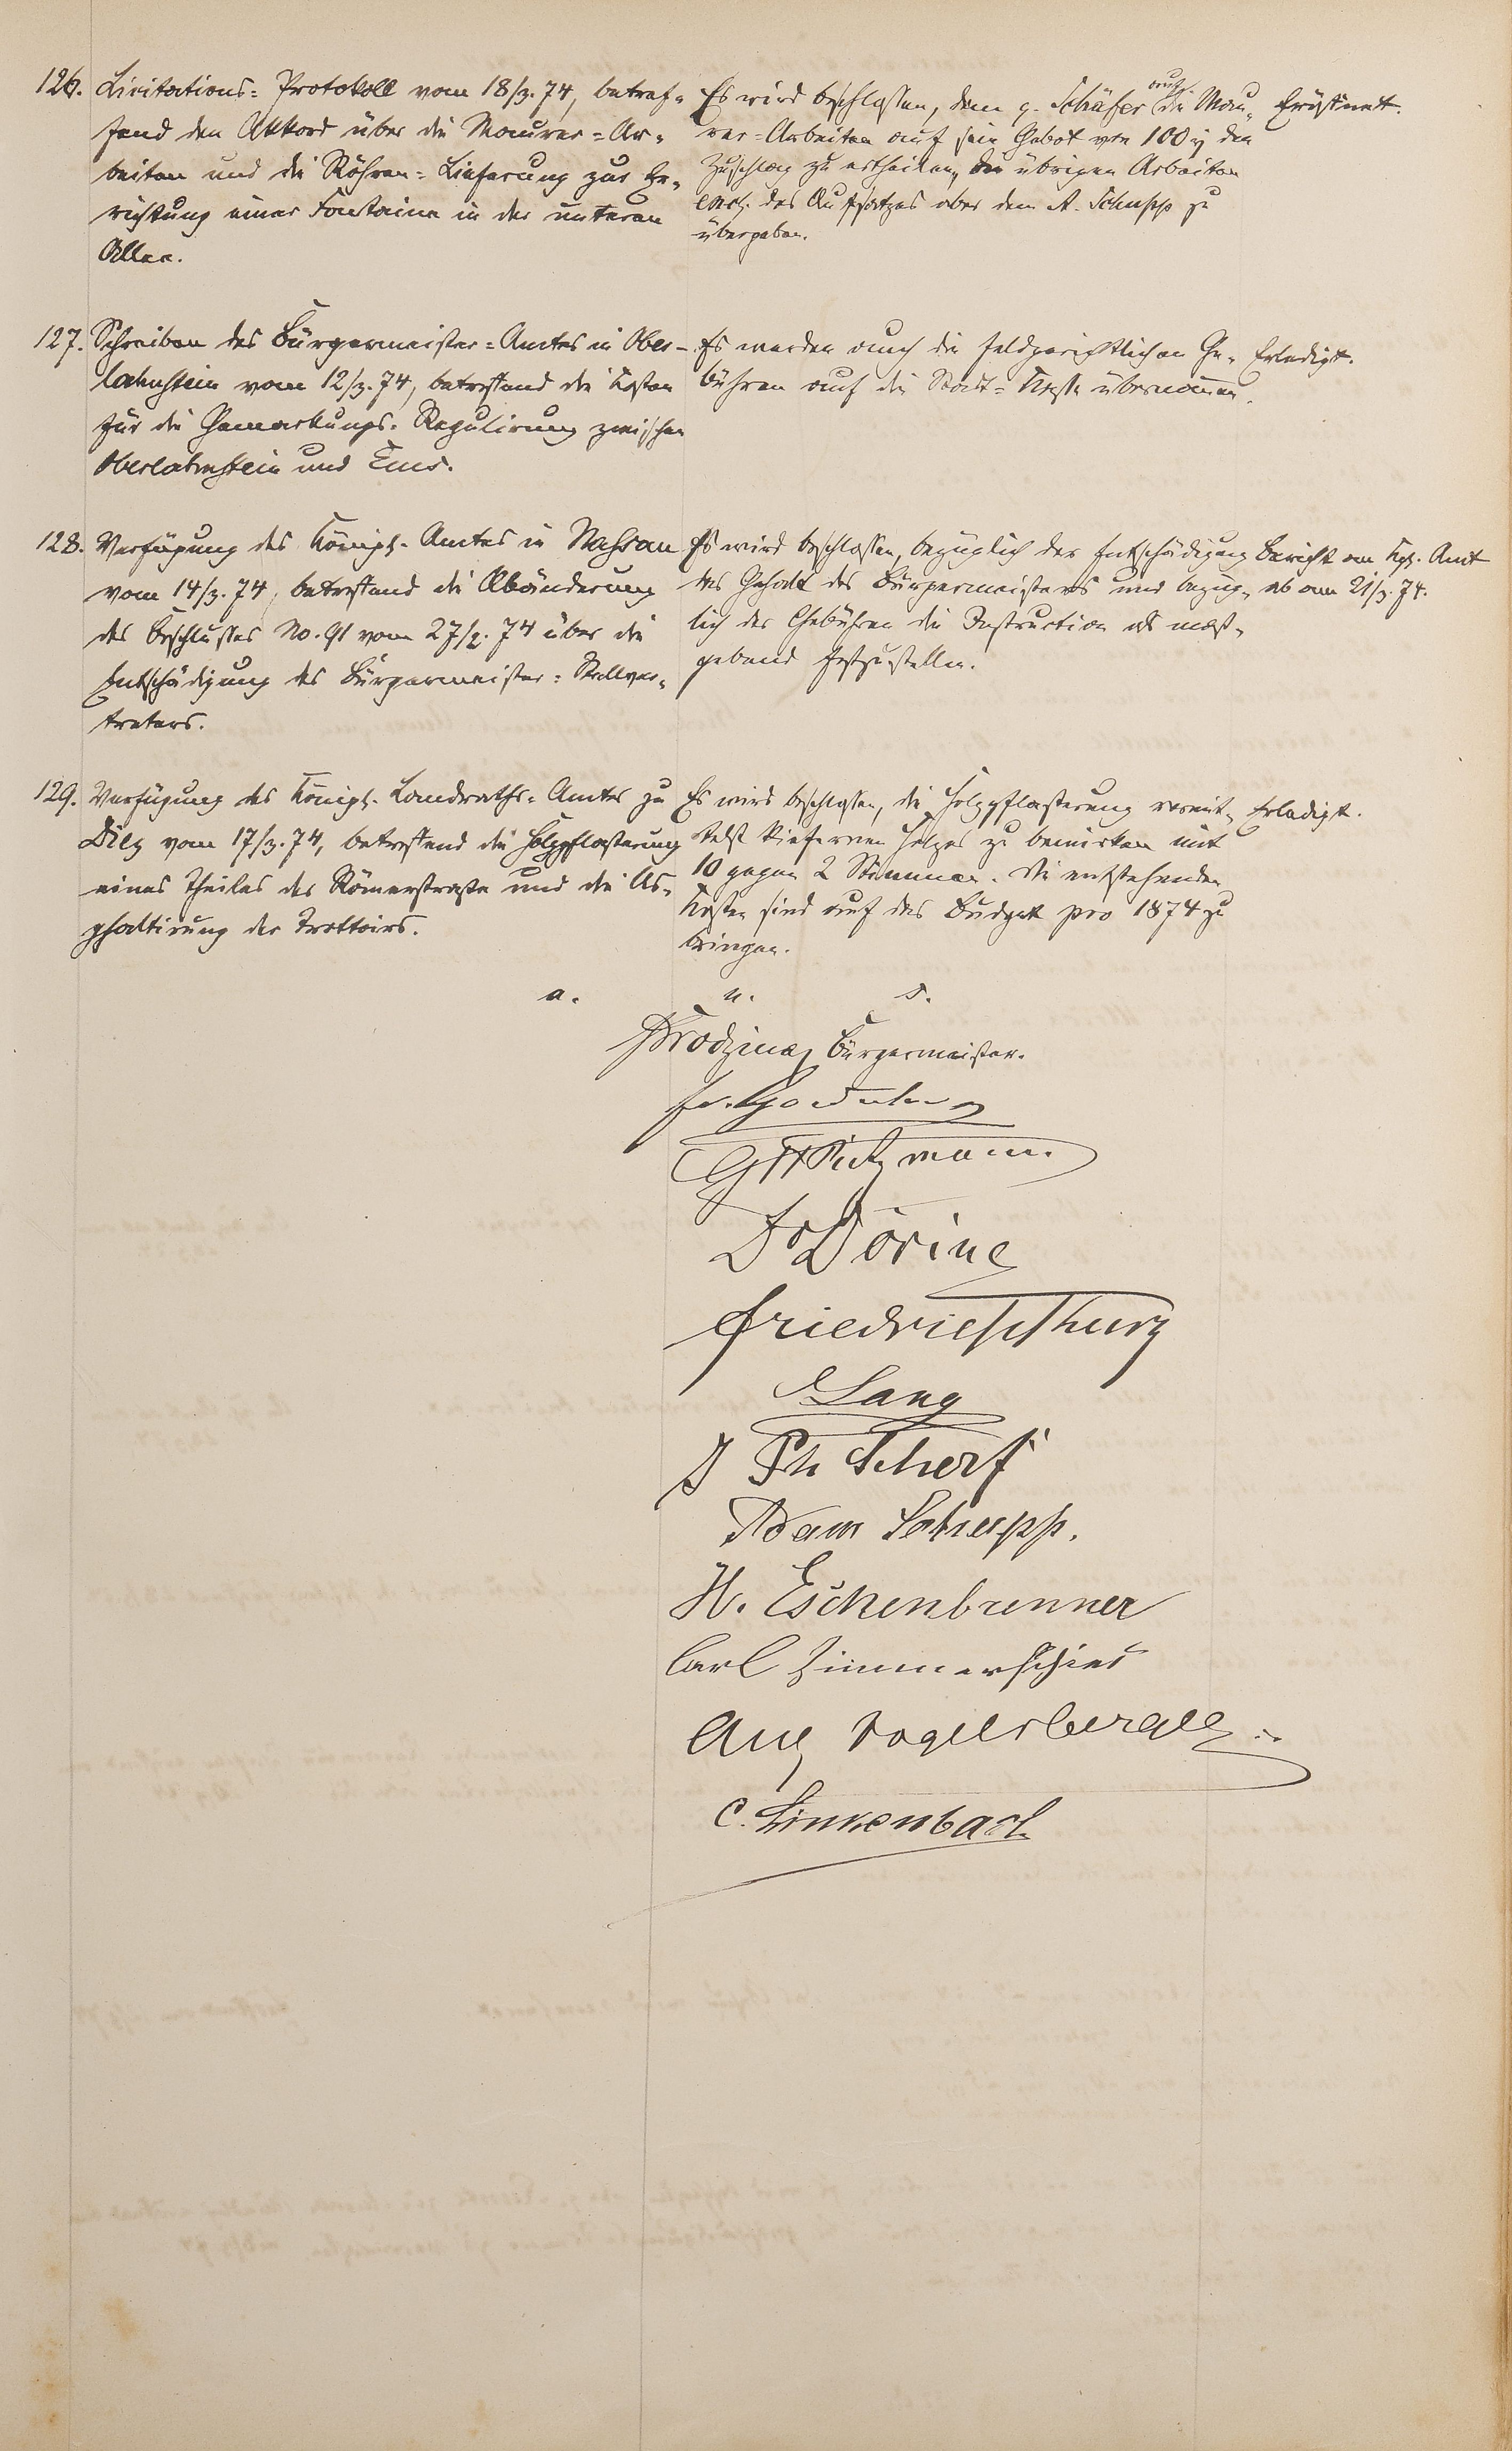 126. Licitations= Protokoll vom 18/3. 74, betref=
fend den Akkord über die Maurer=Ar=
beiten und die Röhren=Lieferung zur Er=
richtung einer Fontaine in der unteren
Allee.
Es wird beschlossen, dem g. Schäfer auch die Mau=
rer=Arbeiten auf sein Gebot von 100 den
Zuschlag zu ertheilen, die übrigen Arbeiten
excl. des Aufsatzes aber dem A. Schupp zu
übergeben.
Eröffnet.
127. Schreiben des Bürgermeister=Amtes in Ober-
lahnstein vom 12/3. 74, betreffend die Kosten
für die Gemarkungs=Regulirung zwischen
Oberlahnstein und Ems.
Es werden auch die feldgerichtlichen Ge=
bühren auf die Stadt=Kasse übernommen.
Erledigt.
128. Verfügung des Königl. Amtes in Nassau
vom 14/3. 74, betreffend die Abänderung
des Beschlusses No. 91 vom 27/2. 74 über die
Entschädigung des Bürgermeister=Stellver=
treters.
Es wird beschlossen, bezüglich der Entschädigung
des Gehalt des Bürgermeisters und bezüg=
lich der Gebühren die Instruction als maß=
gebend festzustellen.
Bericht an Kgl. Amt
ab am 21/3. 74.
129. Verfügung des Königl. Landraths=Amtes zu
Diez vom 17/3. 74, betreffend die Holzpflasterung
eines Theiles der Römerstraße und die As=
phaltirung der Trottoirs.
Es wird beschlossen, die Holzpflasterung vermit=
telst kiefernen Holzes zu bewirken mit
10 gegen 2 Stimmen. Die entstehenden
Kosten sind auf das Budget pro 1874 zu
bringen.
Erledigt.
a. u. s.
Bürgermeister.
Dr Döring
Friedrich Kurz
Lang
J Ph Scherf
Adam Schupp.
H. Eschenbrenner
Carl Zimmerschied
Aug Vogelsberger
C. Linkenbach